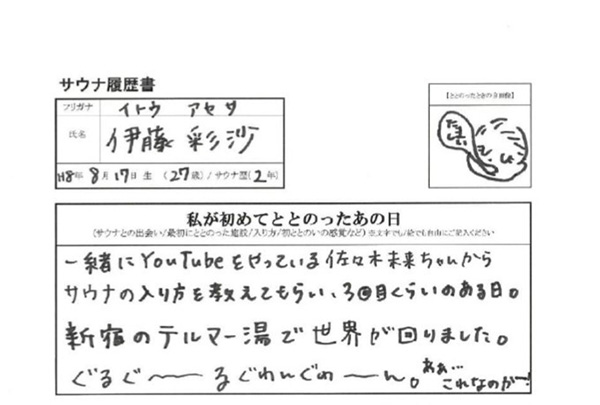 サウナ履歴書
フリガナ イトウ アヤサ
氏名 伊藤 彩沙
H8年 8月17日生 (27歳)/サウナ歴(2年)
【ととのったときの自画像】
私が初めてととのったあの日
(サウナとの出会い/最初にととのった施設/入り方/初ととのいの感覚など)※文字でも/絵でも自由にご記入ください
一緒にYouTubeをやっている佐々木未来ちゃんから
サウナの入り方を教えてもらい、3回目くらいのある日。
新宿のテルマー湯で世界が回りました。
ぐるぐ〜〜るぐわんぐわ〜ん。ああ…
これなのかー!